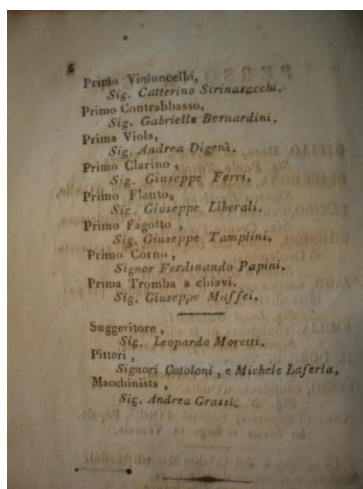 6
Primo Violoncello,
Sig. Catterino Strinasacchi.
Primo Contrabbasso,
Sig. Gabrielle Bernardini.
Prima Viola,
Sig. Andrea Digeni.
Primo Clarino,
Sig. Giuseppe Ferri.
Primo Flauto,
Sig. Giuseppe Liberali.
Primo Fagotto,
Sig. Giuseppe Tamplini.
Primo Corno,
Signor Ferdinando Papini.
Prima Tromba a chiavi.
Sig. Giuseppe Maffei.
Suggeritore,
Sig. Leopardo Moretti.
Pittori,
Signori Cotoloni, e Michele Laferla,
Macchinista,
Sig. Andrea Grassi.